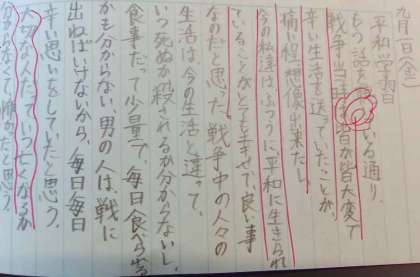 九月一日(金)
平和学習
もう話を聞いている通り、
戦争当時は皆が皆大変で
辛い生活を送っていたことが、
痛い程想像出来たし、
今の私達は、ふつうに平和に生きられ
ていることがとても幸せで良い事
なのだと思った。戦争中の人々の
生活は、今の生活と違って、
いつ死ぬか殺されるか分からないし、
食事だって少量で、毎日食べられる
かも分からない。男の人は、戦に
出ねばいけないから、毎日毎日
辛い思いをしていたと思う。
大切な人だっていつ亡くなるか
分からなくて、怖かったと思う。